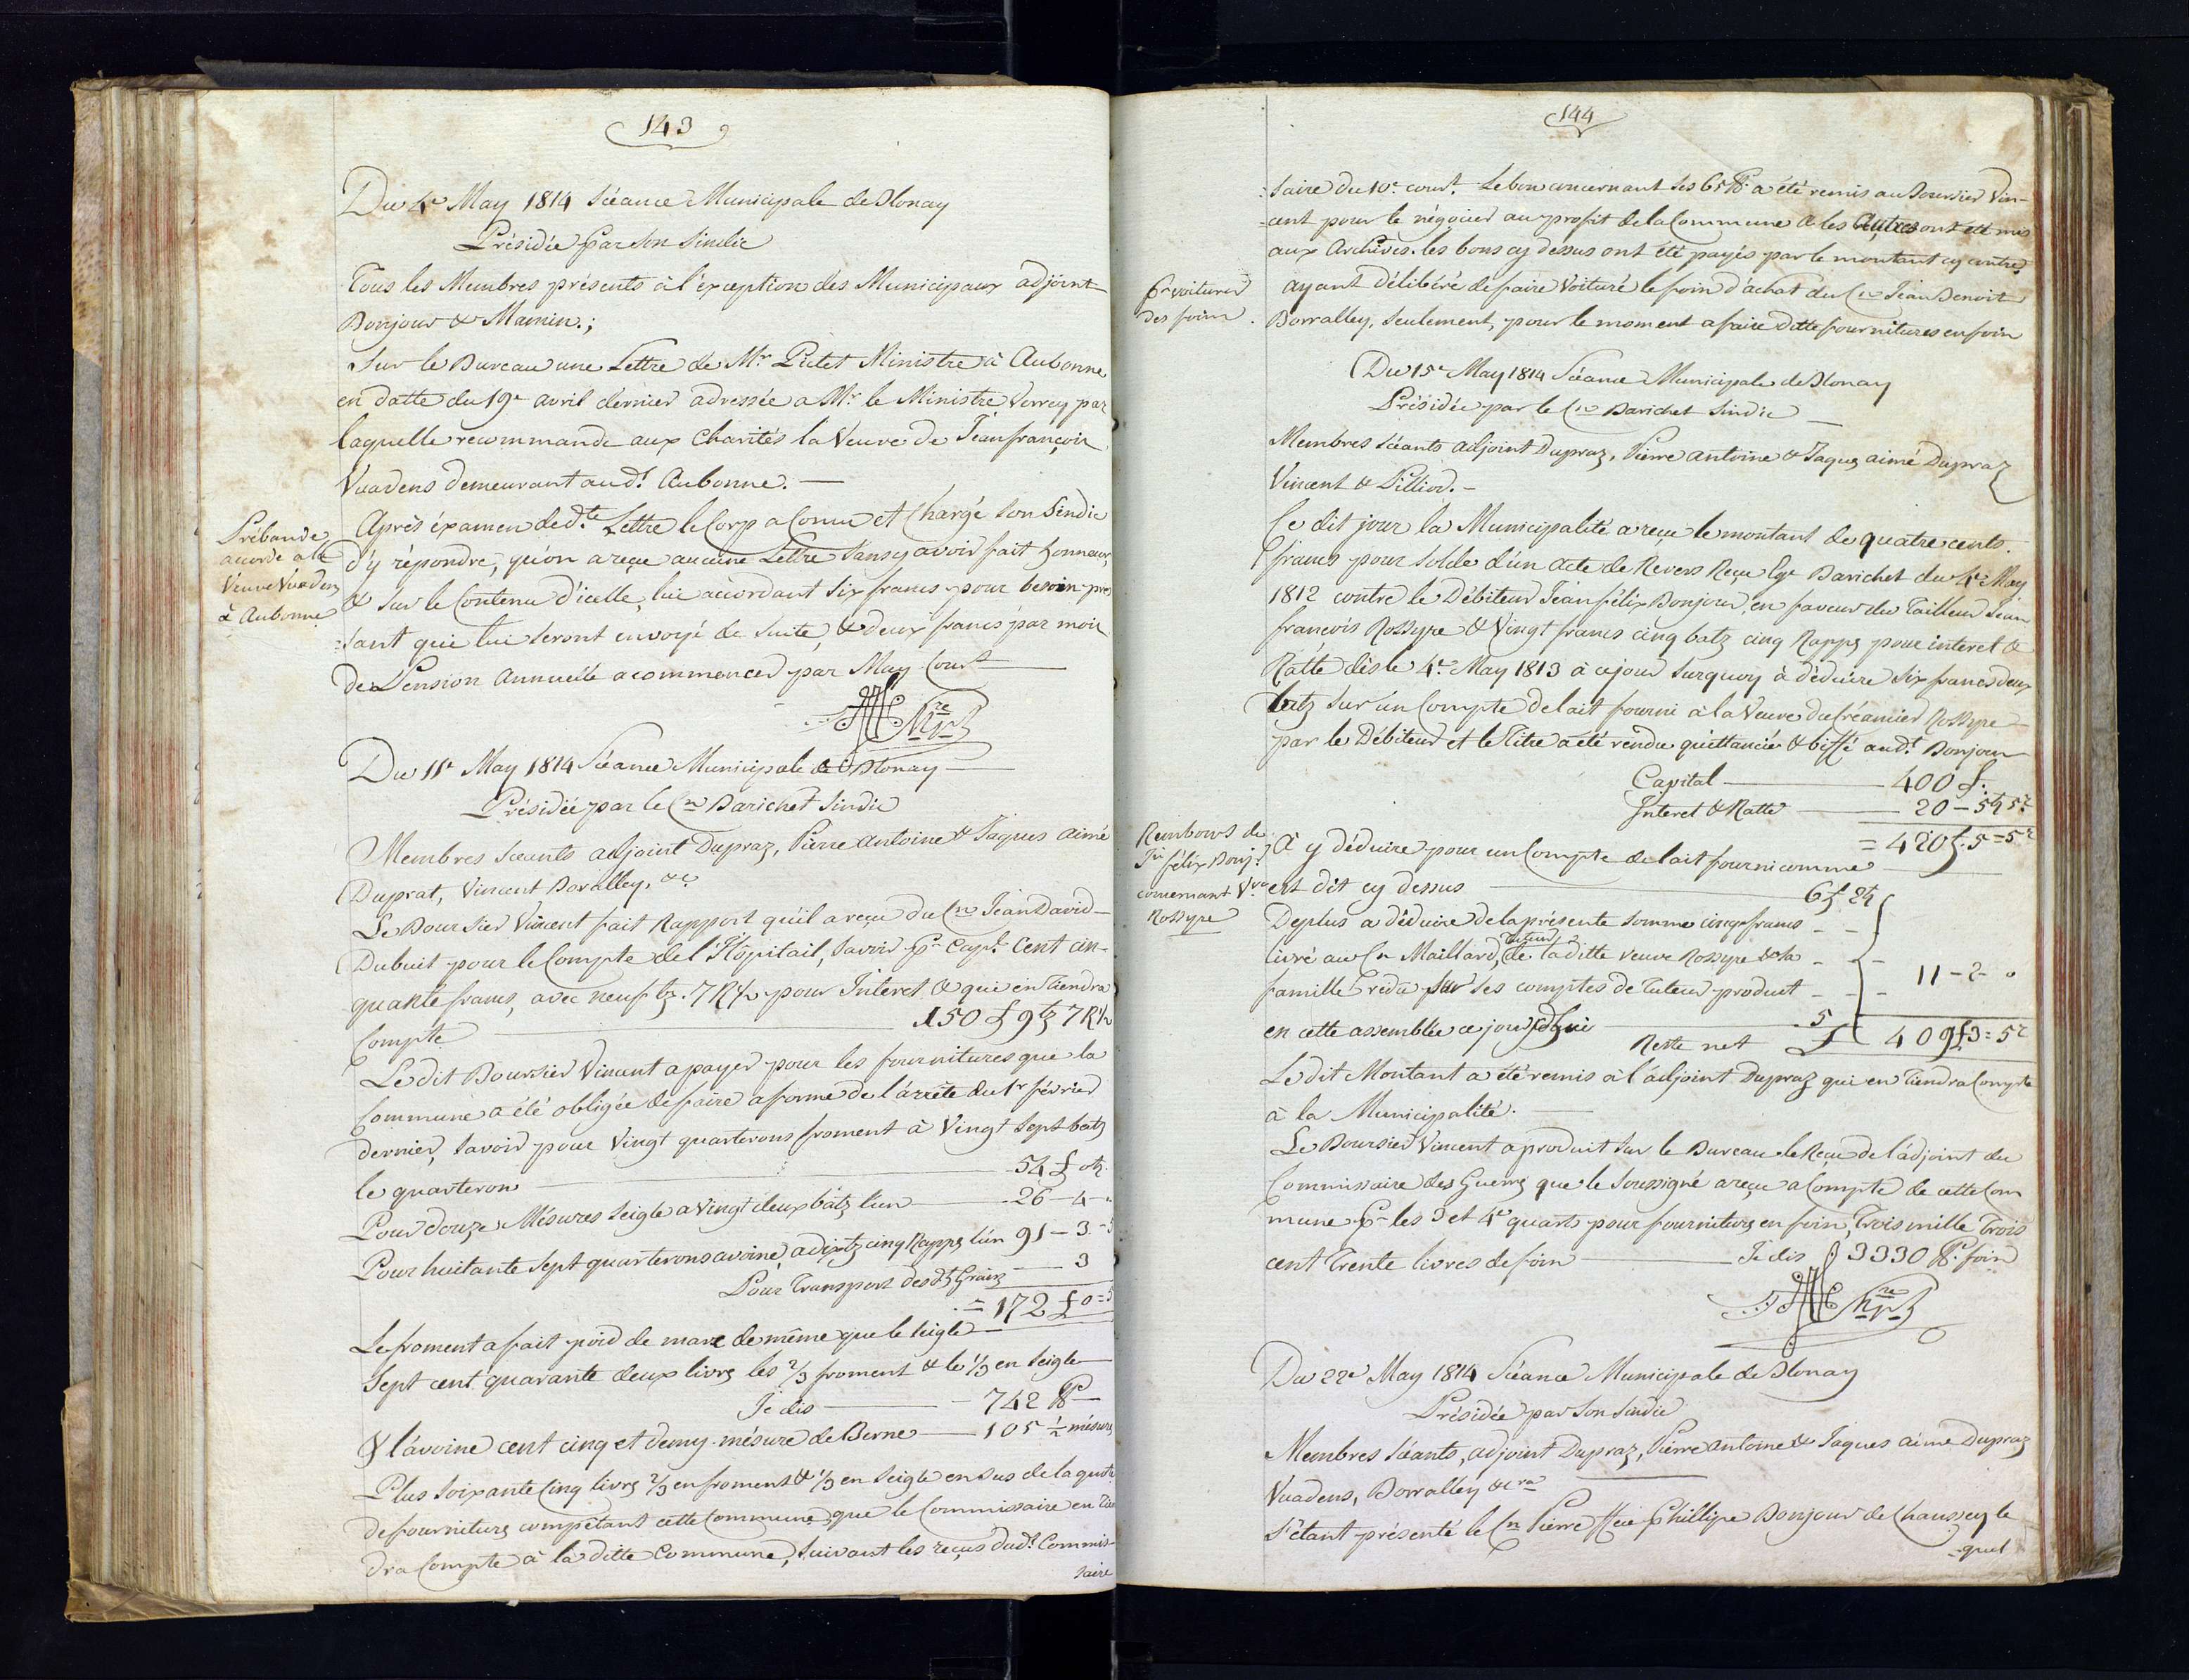 143
Du 4e May 1814 Séance Municipale de Blonay
Présidée par son Sindic
Tous les Membres présents à l'éxception des Municipaux adjoint
Bonjour & Mamin.;
Sur le Bureau une Lettre de Mr. Pictet Ministre à Aubonne
en datte du 19e avril dernier adressée a Mr le Ministre Verrey par
laquelle recommande aux Charités la Veuve de Jean françois
Vuadens demeurant aud.t Aubonne. —
Prébande
accordé a la
Veuve Vuadens
à Aubonne
Après éxamen de d.te Lettre le Corp a Connu et Chargé son Sindic
d'y répondre, qu'on a reçu aucune Lettre sans y avoir fait honneur,
& sur le Contenu d'icelle, lui accordant six francs pour besoin pres
=sant qui lui seront envoyé de suite, & deux francs par mois
de Pension annuelle a commencer par May Court
Du 11e May 1814 Séance Municipale de Blonay —
Présidée par le Cn Barichet Sindic
Membres Séants adjoint Dupraz, Pierre Antoine & Jaques aimé
Duprat, Vincent Boralley, &c
Le Boursier Vincent fait Rapport qu'il a reçu du Cn Jean David
Dubuit pour le Compte de l'Hôpitail, savoir pr Capl. Cent cin-
quante francs, avec neuf bz. 7 R ½ pour Interet & qui en Tiendra
Compte — 150 £ 9 bz 7 R ½
Le dit Boursier Vincent a payer pour les fournitures que la
Commune a été obligée de faire a forme de l'arrêté du 1r février
dernier, savoir pour Vingt quarterons froment à Vingt sept batz
le quarteron — 54 £ 0 bz.
Pour douze Mésures seigle a vingt deux batz l'un — 26 — 4 — "
Pour huitante sept quarterons avoine, a dix bz cinq Rapps l'un 91 — 3 = 5
Pour Transport des dts Grains — 3
= 172 £ 0 = 5
Le froment a fait poid de marc de même que le seigle
Sept cent quarante deux livres les 2/3 froment & le 1/3 en seigle
Je dis — 742 ℔ —
& l'avoine cent cinq et demy mésure de Berne — 105 ½ mésures
Plus soixante Cinq livres 2/3 en froment & 1/3 en seigle en sus de la quote
de fournitures compétant cette Commune, que le Commissaire en Tien
dra Compte à la ditte Commune, suivant les reçus dud.t Commis-
saire
144
=saire du 10e court. Le bon concernant les 65 ℔ a été remis au Boursier Vin-
=cent pour le négocier au profit de la Commune & les Autres ont été mis
aux Archives. les bons cy dessus ont été payés par le montant cy contre
Pr voiturer
des foins
ayant délibéré de faire Voituré le foin d'achat du Cn Jean Benoit
Borralley, seulement, pour le moment a faire d.tte fournitures en foin
Du 15e May 1814 Séance Municipale de Blonay
Présidée par le Cn Barichet Sindic
Membres Séants adjoint Dupraz, Pierre Antoine & Jaques aimé Dupraz
Vincent & Pilliod. —
Ce dit jour la Municipalité a reçu le montant de quatre cents
francs pour solde d'un acte de Revers Reçu Barichet du 4e May
1812 contre le Débiteur Jean félix Bonjour, en faveur du Tailleur Jean
francois Rossyre & Vingt francs cinq batz cinq Rapps pour interet &
Ratte dès le 4e May 1813 à ce jour surquoy à déduire six francs deux
batz sur un Compte de lait fourni à la Veuve du Créancier Rossyre
par le Débiteur et le Titre a été rendu quittancée & biffé aud.t Bonjour
Capital — 400 £.
Interet & Ratte — 20 — 5 bz 5 r
= 420 £. 5 = 5 r
Rembours de
Jn félix Bonj.r
concernant Vve
Rossyre
à y déduire pour un Compte de lait fourni comme
est dit cy dessus — 6 £ 2 bz
De plus a déduire de la présente somme cinq francs
livré au Cn Maillard, Tuteur de la ditte veuve Rossyre & sa
famille sur ses comptes de Tuteur produit 11 — 2 — "
en cette assemblée ce jourd'hui — 5
Reste net £ 409 £ 3 = 5 r
Le dit Montant a été remis à l'adjoint Dupraz qui en Tiendra Compte
à la Municipalité. —
Le Boursier Vincent a produit sur le Bureau le Reçu de l'adjoint du
Commissaire des Guerres que le soussigné a reçu a Compte de cette Com
mune pr les 3 et 4e quarts pour fournitures en foin, Trois mille Trois
cent Trente livres de foin — Je dis 3330 ℔ foin
Du 22e May 1814 Séance Municipale de Blonay
Présidée par son Sindic
Membres Séants, adjoint Dupraz, Pierre Antoine & Jaques aimé Dupraz
Vuadens, Borralley &cra
S'étant présenté le Cn Pierre Phillipe Bonjour de Chaussey le
=quel